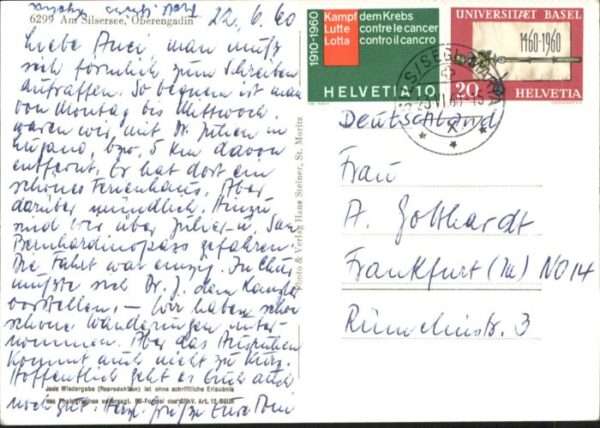 22.6.60
6299 Am Silsersee, Oberengadin
Liebe Anni, man muß
sich förmlich zum Schreiben
aufraffen. So bequem ist man
von Montag bis Mittwoch
waren wir mit Dr. in
bzw. 5 km davon
entfernt. Er hat dort ein
schönes Ferienhaus. Aber
darüber mündlich. Hinzu
sind wir über Julier- u. San
Bernhardinopass gefahren.
Die Fahrt war einzig. In Chur
mußte sich Dr. J. dem Kanton
vorstellen. – Wir haben schon
schöne Wanderungen unter-
nommen. Aber das Ausruhen
kommt auch nicht zu kurz.
Hoffentlich geht es Euch auch
noch gut. Herzl. Grüße Eure Toni
Jede Wiedergabe (Reproduktion) ist ohne schriftliche Erlaubnis
des Photographen untersagt. Art. 12
Photo & Verlag Hans Steiner, St. Moritz
1910-1960
Kampf dem Krebs
Lutte contre le cancer
Lotta contro il cancro
HELVETIA 10
UNIVERSITÆT BASEL
1460-1960
20 HELVETIA
SILS/SEGL
Deutschland
Frau
A. Gotthardt
Frankfurt (M) NO 14
Rümelinstr. 3